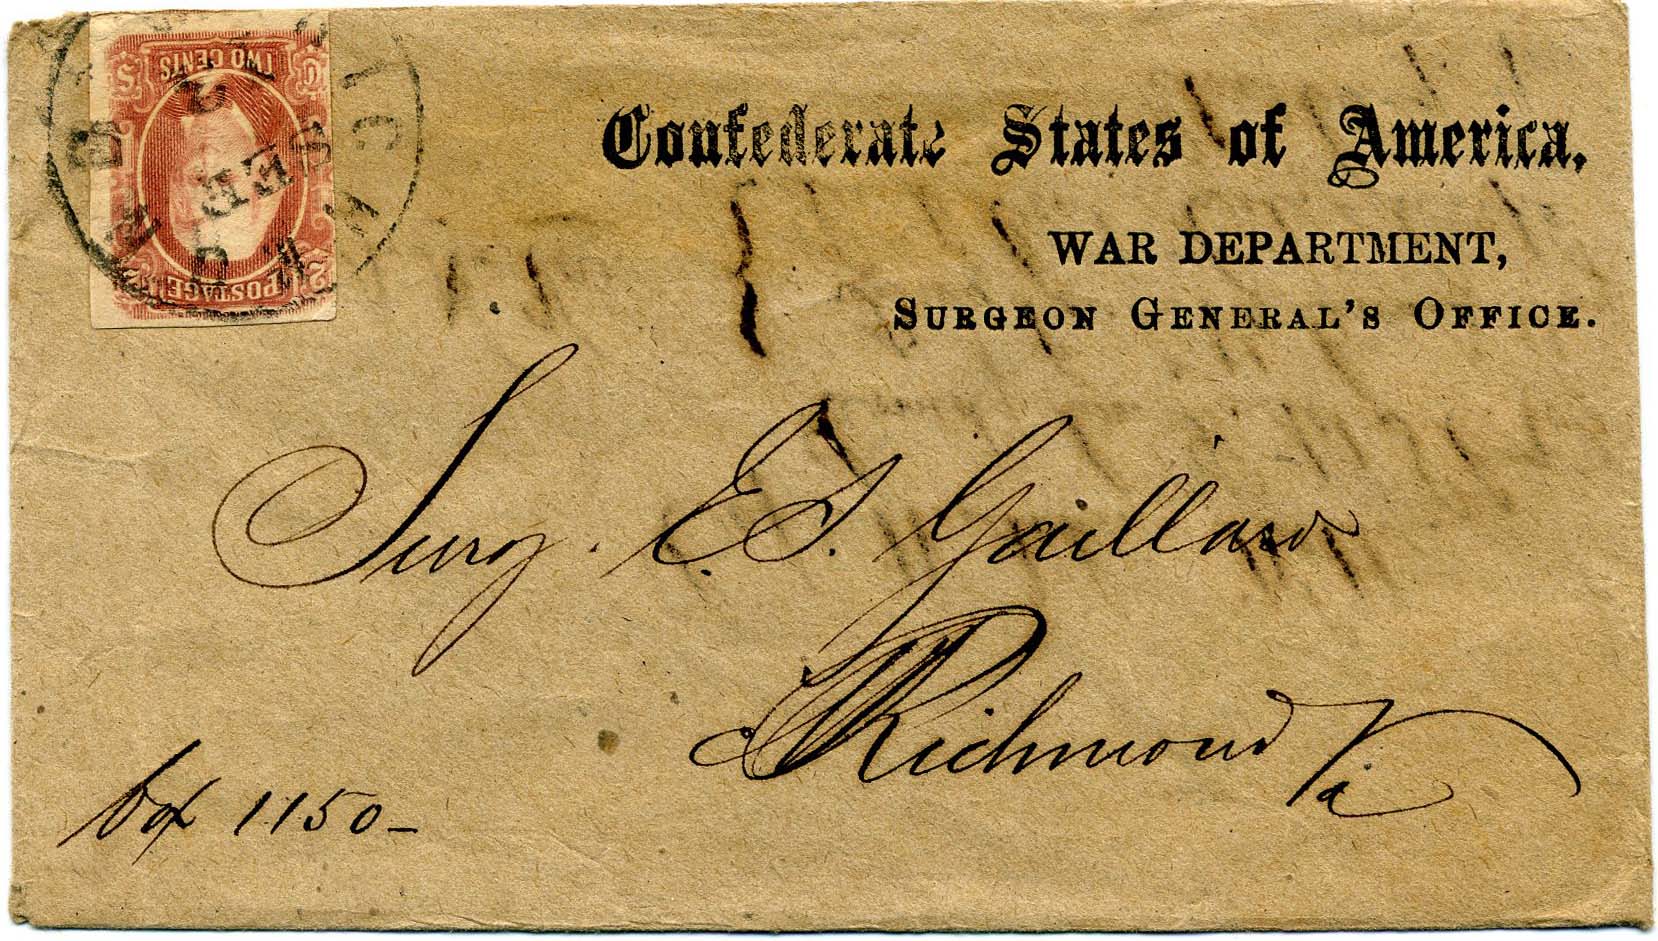 TWO CENTS
POSTAGE
FEB
Confederate States of America,
WAR DEPARTMENT,
SURGEON GENERAL'S OFFICE.
Surg. E. S. Gaillard
Richmond Va
box 1150-